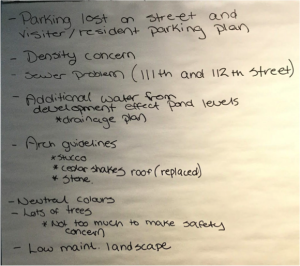 - Parking lost on street and
visiter/resident parking plan
- Density concern
- Sewer problem (111th and 112th street)
- Additional water from
development effect pond levels
*drainage plan
- Arch guidelines
*stucco
*cedar shakes roof (replaced)
*stone
- Neutral colours
- Lots of trees
*Not too much to make safety
concern
- Low maint landscape